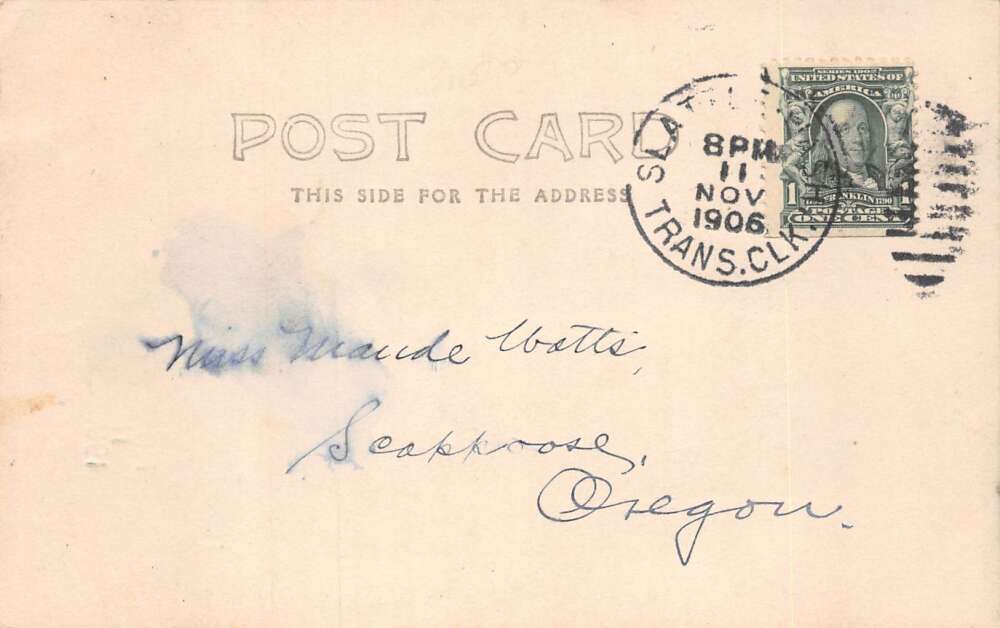 POST CARD
THIS SIDE FOR THE ADDRESS
8 PM
11
NOV
1906
TRANS. CLK.
SERIES 1902
UNITED STATES OF
AMERICA
1
FRANKLIN 1790
POSTAGE
ONE CENT
Miss Maude Watts,
Scappoose,
Oregon.